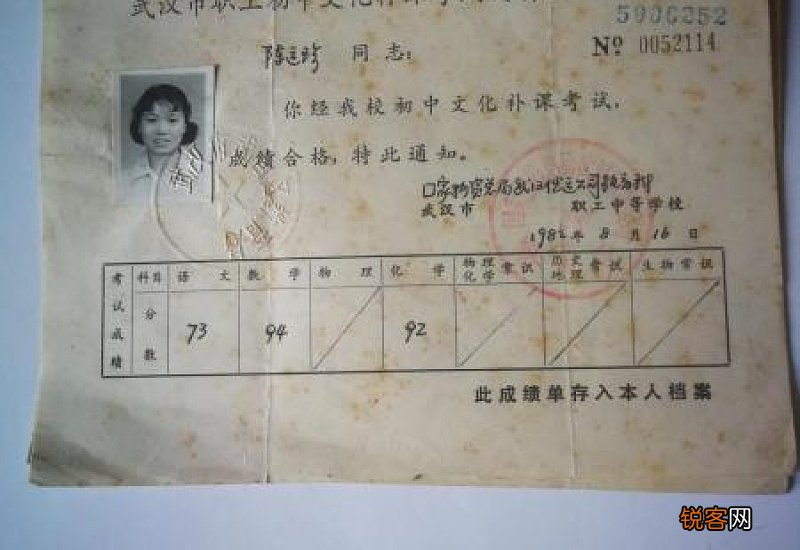 武汉市职工初中文化补课考试
5906252
№ 0052114
同志：
你经我校初中文化补课考试，
成绩合格，特此通知。
武汉市 职工中等学校
1982 年 8 月 16 日
考试成绩 科目 语文 数学 物理 化学 物理化学常识 历史地理常识 生物常识
分数 73 94 92
此成绩单存入本人档案
锐客网